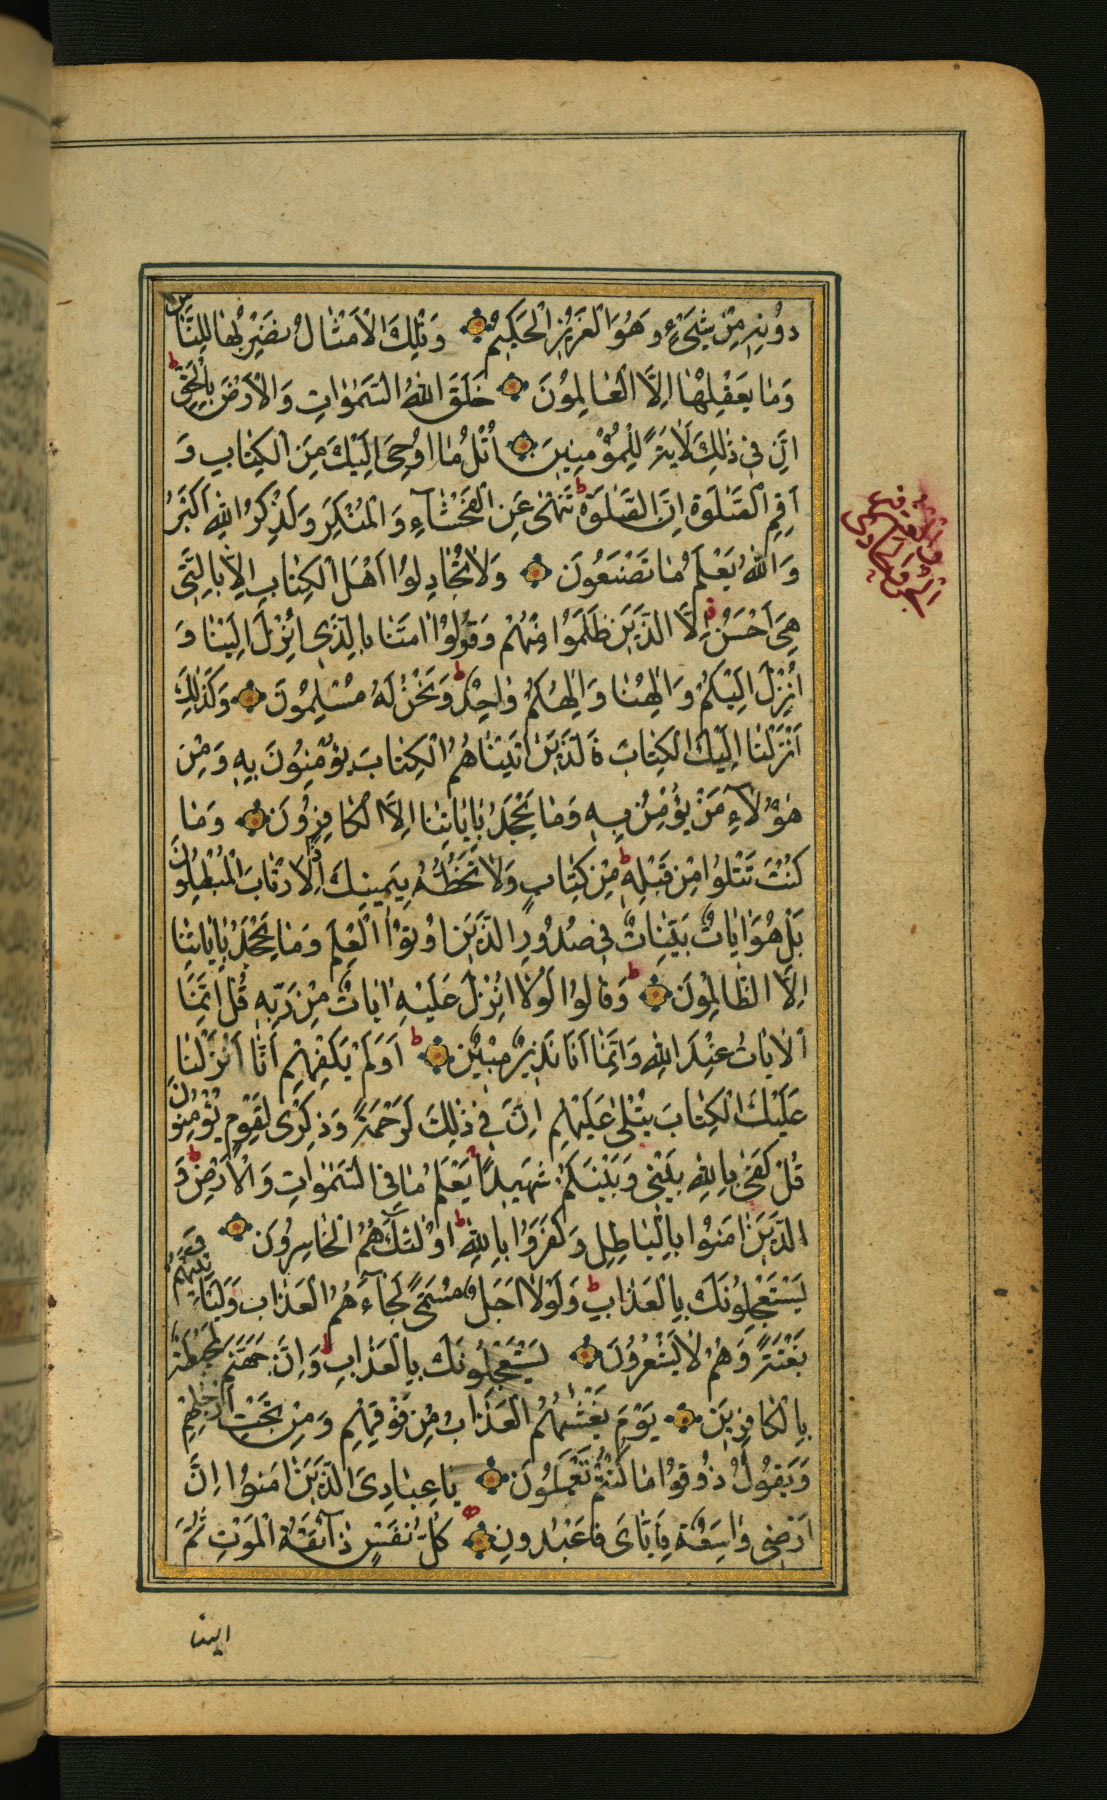 دُونِهِ مِنْ شَيْءٍ وَهُوَ الْعَزِيزُ الْحَكِيمُ وَتِلْكَ الْأَمْثَالُ نَضْرِبُهَا لِلنَّاسِ
وَمَا يَعْقِلُهَا اِلَّا الْعَالِمُونَ خَلَقَ اللهُ السَّمٰوَاتِ وَالْأَرْضَ بِالْحَقِّ ط
اِنَّ فِي ذٰلِكَ لَاٰيَةً لِلْمُؤْمِنِينَ اُتْلُ مَا اُوحِيَ اِلَيْكَ مِنَ الْكِتَابِ وَ
اَقِمِ الصَّلٰوةَ اِنَّ الصَّلٰوةَ ط تَنْهٰى عَنِ الْفَحْشَآءِ وَالْمُنْكَرِ وَلَذِكْرُ اللهِ اَكْبَرُ
وَاللهُ يَعْلَمُ مَا تَصْنَعُونَ وَلَا تُجَادِلُوا اَهْلَ الْكِتَابِ اِلَّا بِالَّتِي
هِيَ اَحْسَنُ اِلَّا الَّذِينَ ظَلَمُوا مِنْهُمْ وَقُولُوا اٰمَنَّا بِالَّذِي اُنْزِلَ اِلَيْنَا وَ
اُنْزِلَ اِلَيْكُمْ وَاِلٰهُنَا وَاِلٰهُكُمْ وَاحِدٌ ط وَنَحْنُ لَهُ مُسْلِمُونَ وَكَذٰلِكَ
اَنْزَلْنَا اِلَيْكَ الْكِتَابَ فَالَّذِينَ اٰتَيْنَاهُمُ الْكِتَابَ يُؤْمِنُونَ بِهِ وَمِنْ
هٰؤُلَآءِ مَنْ يُؤْمِنُ بِهِ وَمَا يَجْحَدُ بِاٰيَاتِنَا اِلَّا الْكَافِرُونَ وَمَا
كُنْتَ تَتْلُوا مِنْ قَبْلِهِ ط مِنْ كِتَابٍ وَلَا تَخُطُّهُ بِيَمِينِكَ اِذًا لَارْتَابَ الْمُبْطِلُونَ
بَلْ هُوَ اٰيَاتٌ بَيِّنَاتٌ فِي صُدُورِ الَّذِينَ اُوتُوا الْعِلْمَ وَمَا يَجْحَدُ بِاٰيَاتِنَا
اِلَّا الظَّالِمُونَ ط وَقَالُوا لَوْلَا اُنْزِلَ عَلَيْهِ اٰيَاتٌ مِنْ رَبِّهِ قُلْ اِنَّمَا
الْاٰيَاتُ عِنْدَ اللهِ وَاِنَّمَا اَنَا نَذِيرٌ مُبِينٌ ط اَوَلَمْ يَكْفِهِمْ اَنَّا اَنْزَلْنَا
عَلَيْكَ الْكِتَابَ يُتْلٰى عَلَيْهِمْ اِنَّ فِي ذٰلِكَ لَرَحْمَةً وَذِكْرٰى لِقَوْمٍ يُؤْمِنُونَ
قُلْ كَفٰى بِاللهِ بَيْنِي وَبَيْنَكُمْ شَهِيدًا يَعْلَمُ مَا فِي السَّمٰوَاتِ وَالْاَرْضِ ط وَ
الَّذِينَ اٰمَنُوا بِالْبَاطِلِ وَكَفَرُوا بِاللهِ ط اُولٰئِكَ هُمُ الْخَاسِرُونَ وَ
يَسْتَعْجِلُونَكَ بِالْعَذَابِ ط وَلَوْلَا اَجَلٌ مُسَمًّى لَجَآءَهُمُ الْعَذَابُ وَلَيَأْتِيَنَّهُمْ
بَغْتَةً وَهُمْ لَا يَشْعُرُونَ يَسْتَعْجِلُونَكَ بِالْعَذَابِ ط وَاِنَّ جَهَنَّمَ لَمُحِيطَةٌ
بِالْكَافِرِينَ يَوْمَ يَغْشٰهُمُ الْعَذَابُ مِنْ فَوْقِهِمْ وَمِنْ تَحْتِ اَرْجُلِهِمْ
وَيَقُولُ ذُوقُوا مَا كُنْتُمْ تَعْمَلُونَ يَا عِبَادِيَ الَّذِينَ اٰمَنُوا اِنَّ
اَرْضِي وَاسِعَةٌ فَاِيَّايَ فَاعْبُدُونِ كُلُّ نَفْسٍ ذَآئِقَةُ الْمَوْتِ ثُمَّ
الينا